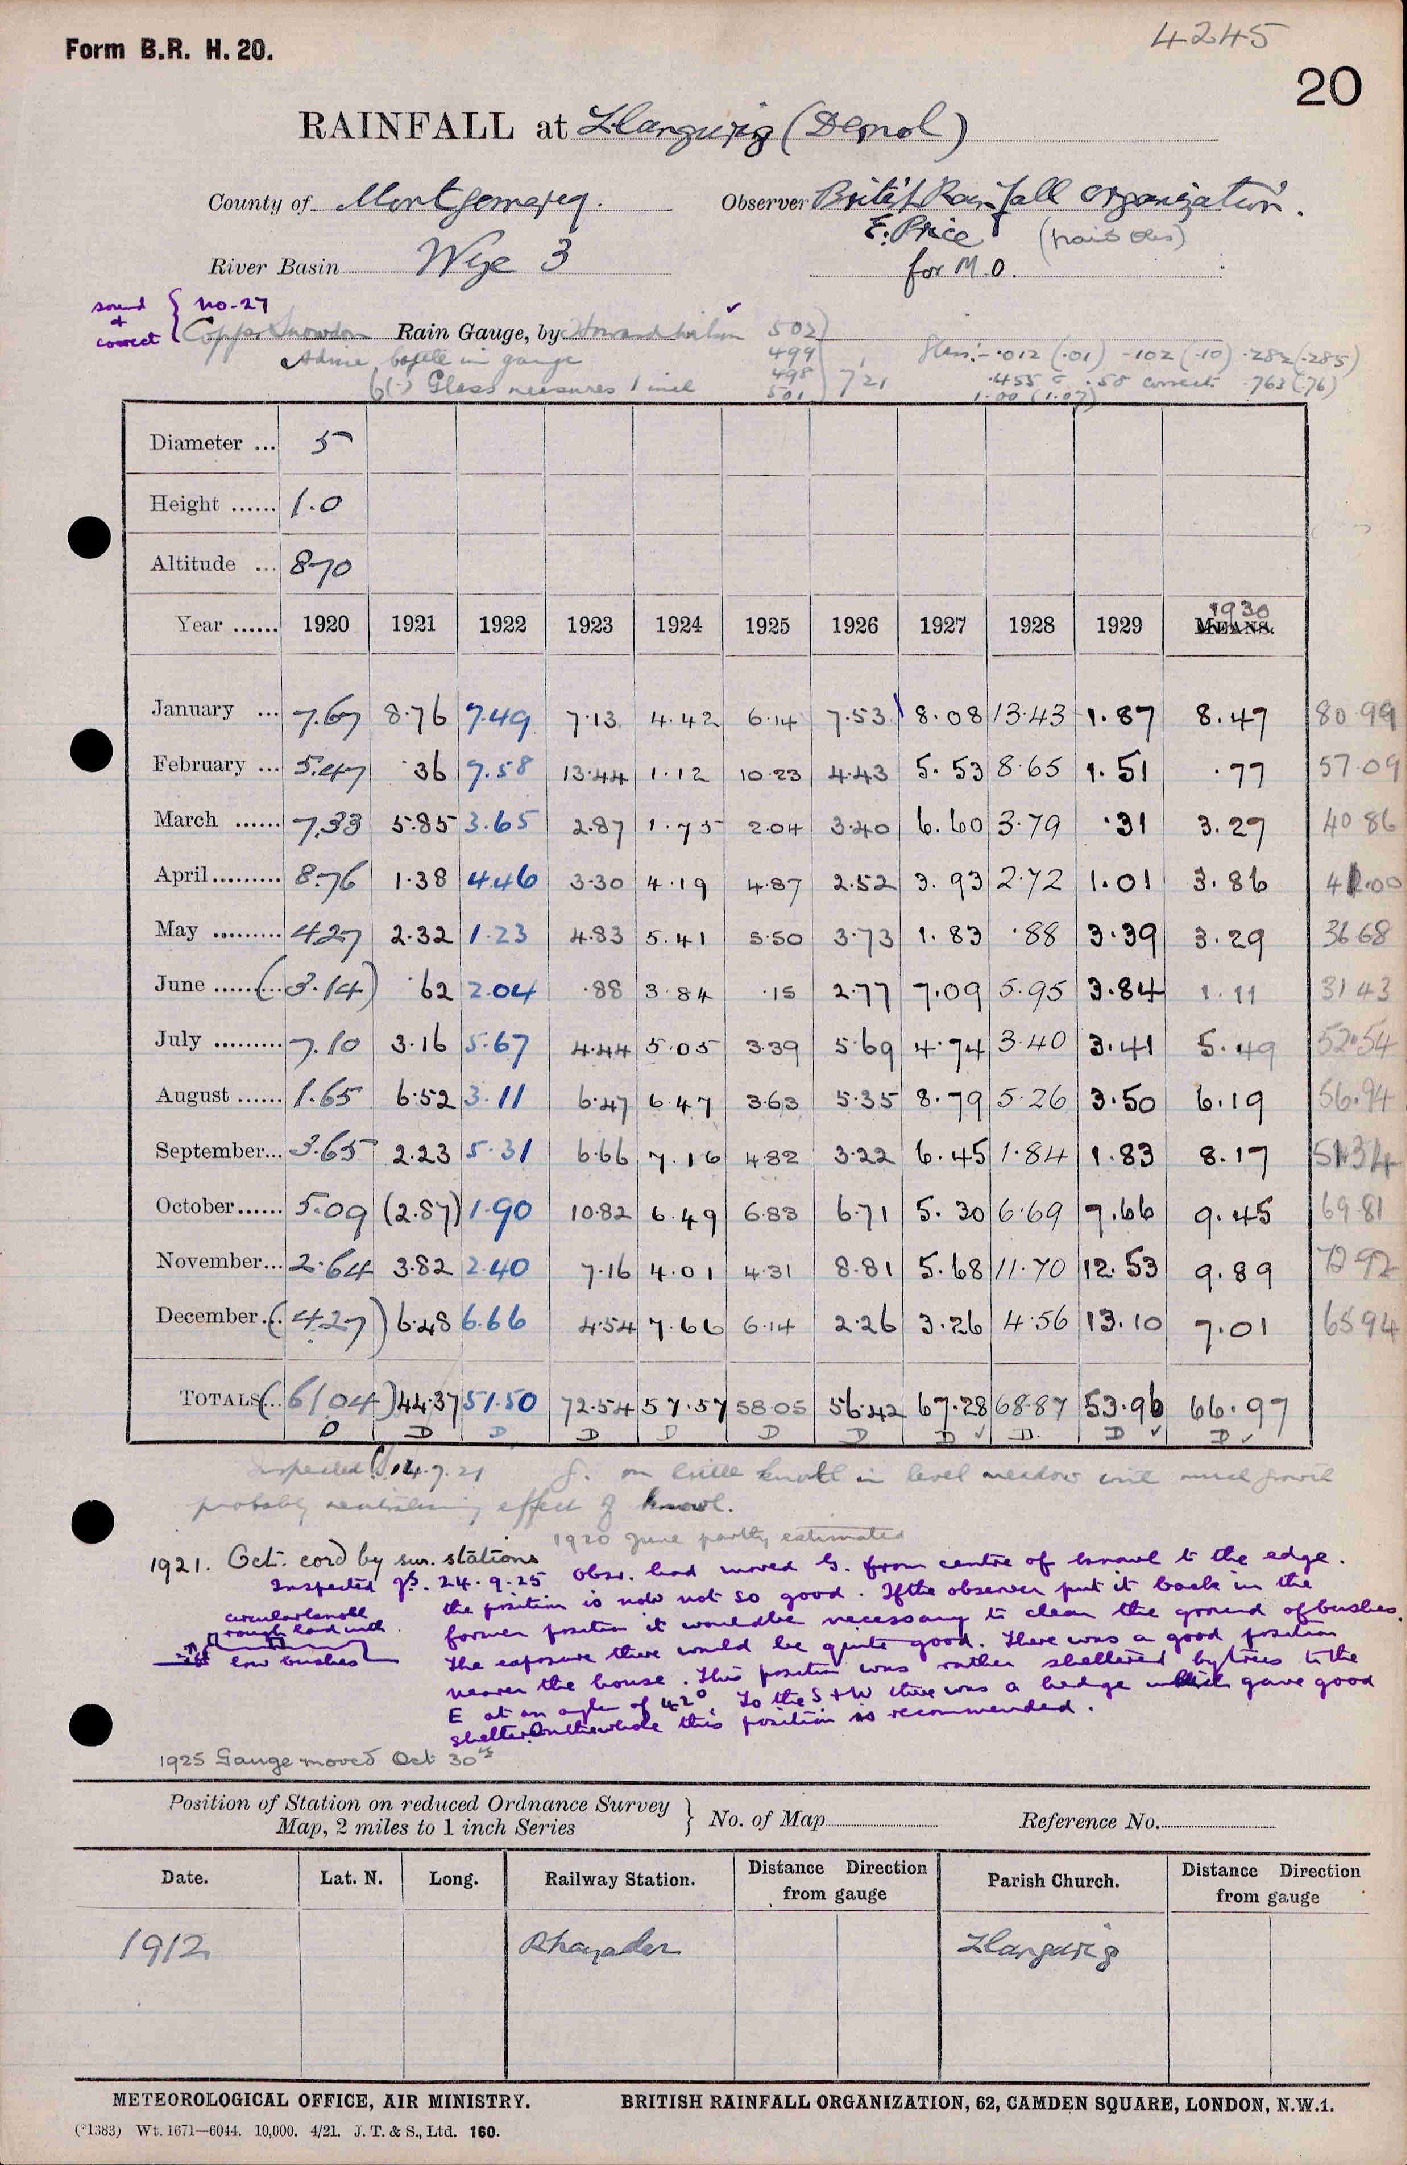 4245
Form B.R. H. 20.
20
RAINFALL at Llangurig (Dernol)
County of Montgomery. Observer British Rainfall Organization.
E. Price (paid obs)
River Basin Wye 3 for M.O.
sound + correct { No-27
Copper Snowdon Rain Gauge, by Howard Wilson ✓ 502
bottle in gauge 499 Glass:- .012 (.01) -102 (.10) .282 (.285)
Glass measures 1 inch 498 721 .455 & .58 correct .763 (.76)
501 1.00 (1.07)
Diameter ... 5
Height ...... 1.0
Altitude ... 870
Year ...... 1920 1921 1922 1923 1924 1925 1926 1927 1928 1929 1930 MEANS.
January ... 7.67 8.76 7.49 7.13 4.42 6.14 7.53 8.08 13.43 1.87 8.47 80.99
February ... 5.47 .36 7.58 13.44 1.12 10.23 4.43 5.53 8.65 1.51 .77 57.09
March ...... 7.33 5.85 3.65 2.87 1.75 2.04 3.40 6.60 3.79 .31 3.27 40.86
April ......... 8.76 1.38 4.46 3.30 4.19 4.87 2.52 3.93 2.72 1.01 3.86 41.00
May ......... 4.27 2.32 1.23 4.83 5.41 5.50 3.73 1.83 .88 3.39 3.29 36.68
June ......... (3.14) .62 2.04 .88 3.84 .15 2.77 7.09 5.95 3.84 1.11 31.43
July ......... 7.10 3.16 5.67 4.44 5.05 3.39 5.69 4.74 3.40 3.41 5.49 52.54
August ...... 1.65 6.52 3.11 6.47 6.47 3.63 5.35 8.79 5.26 3.50 6.19 56.94
September... 3.65 2.23 5.31 6.66 7.16 4.82 3.22 6.45 1.84 1.83 8.17 51.34
October ...... 5.09 (2.87) 1.90 10.82 6.49 6.83 6.71 5.30 6.69 7.66 9.45 69.81
November... 2.64 3.82 2.40 7.16 4.01 4.31 8.81 5.68 11.70 12.53 9.89 72.92
December... (4.27) 6.48 6.66 4.54 7.66 6.14 2.26 3.26 4.56 13.10 7.01 65.94
TOTALS... (61.04) 44.37 51.50 72.54 57.57 58.05 56.42 67.28 68.87 53.96 66.97
D D D D D D D D ✓ D. D ✓ D ✓
Inspected 14.7.21 G. on little knoll in level meadow with much growth
probably neutralising effect of knowl.
1920 June partly estimated
1921. Oct. cord by sur. stations
Inspected 24.9.25 Obsr. had moved G. from centre of knowl to the edge.
the position is now not so good. If the observer put it back in the
former position it would be necessary to clear the ground of bushes.
circular knoll
rough land with
low bushes
The exposure there would be quite good. There was a good position
nearer the house. This position was rather sheltered by trees to the
E at an angle of 42°. To the S + W there was a hedge which gave good
shelter. On the whole this position is recommended.
1925 Gauge moved Oct 30th
Position of Station on reduced Ordnance Survey Map, 2 miles to 1 inch Series } No. of Map Reference No.
Date. Lat. N. Long. Railway Station. Distance Direction from gauge Parish Church. Distance Direction from gauge
1912 Rhayader Llangurig
METEOROLOGICAL OFFICE, AIR MINISTRY. BRITISH RAINFALL ORGANIZATION, 62, CAMDEN SQUARE, LONDON, N.W.1.
(*1383) Wt. 1671—6044. 10,000. 4/21. J. T. & S., Ltd. 160.